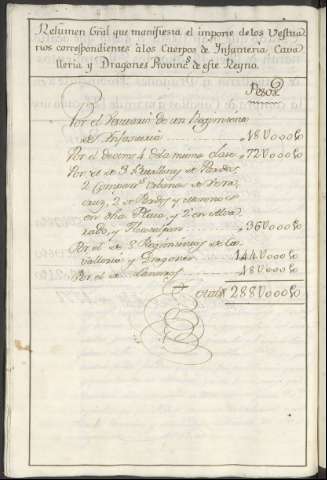 Resumen Gral que manifiesta el importe de los Vestua
rios correspondientes à los Cuerpos de Infanteria, Cava
lleria y Dragones Provinc.s de este Reyno.
Pesos
Por el Vestuario de un Regimiento
de Infanteria 18 V 000 $0
Por el de cinco 4 de la misma clase 72 V 000 $0
Por el de 3 Batallon.s de Pardos,
2 Compañ.s Urbanas de Vera
cruz, 2 de Pardos y Morenos
en dha Plaza, y 2 en Alva
rado, y Tlacotalpan 36 V 000 $0
Por el de 8 Regimientos de Ca
valleria y Dragones 144 V 000 $0
Por el de Lanceros 18 V 000 $0
Total 288 V 000 $0